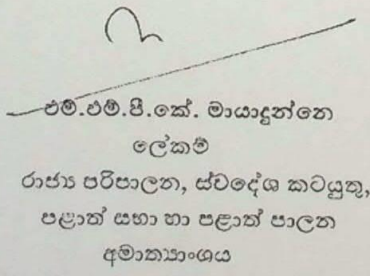 එම්.එම්.පී.කේ. මායාදුන්නෙ
ලේකම්
රාජ්‍ය පරිපාලන, ස්වදේශ කටයුතු,
පළාත් සභා හා පළාත් පාලන
අමාත්‍යාංශය